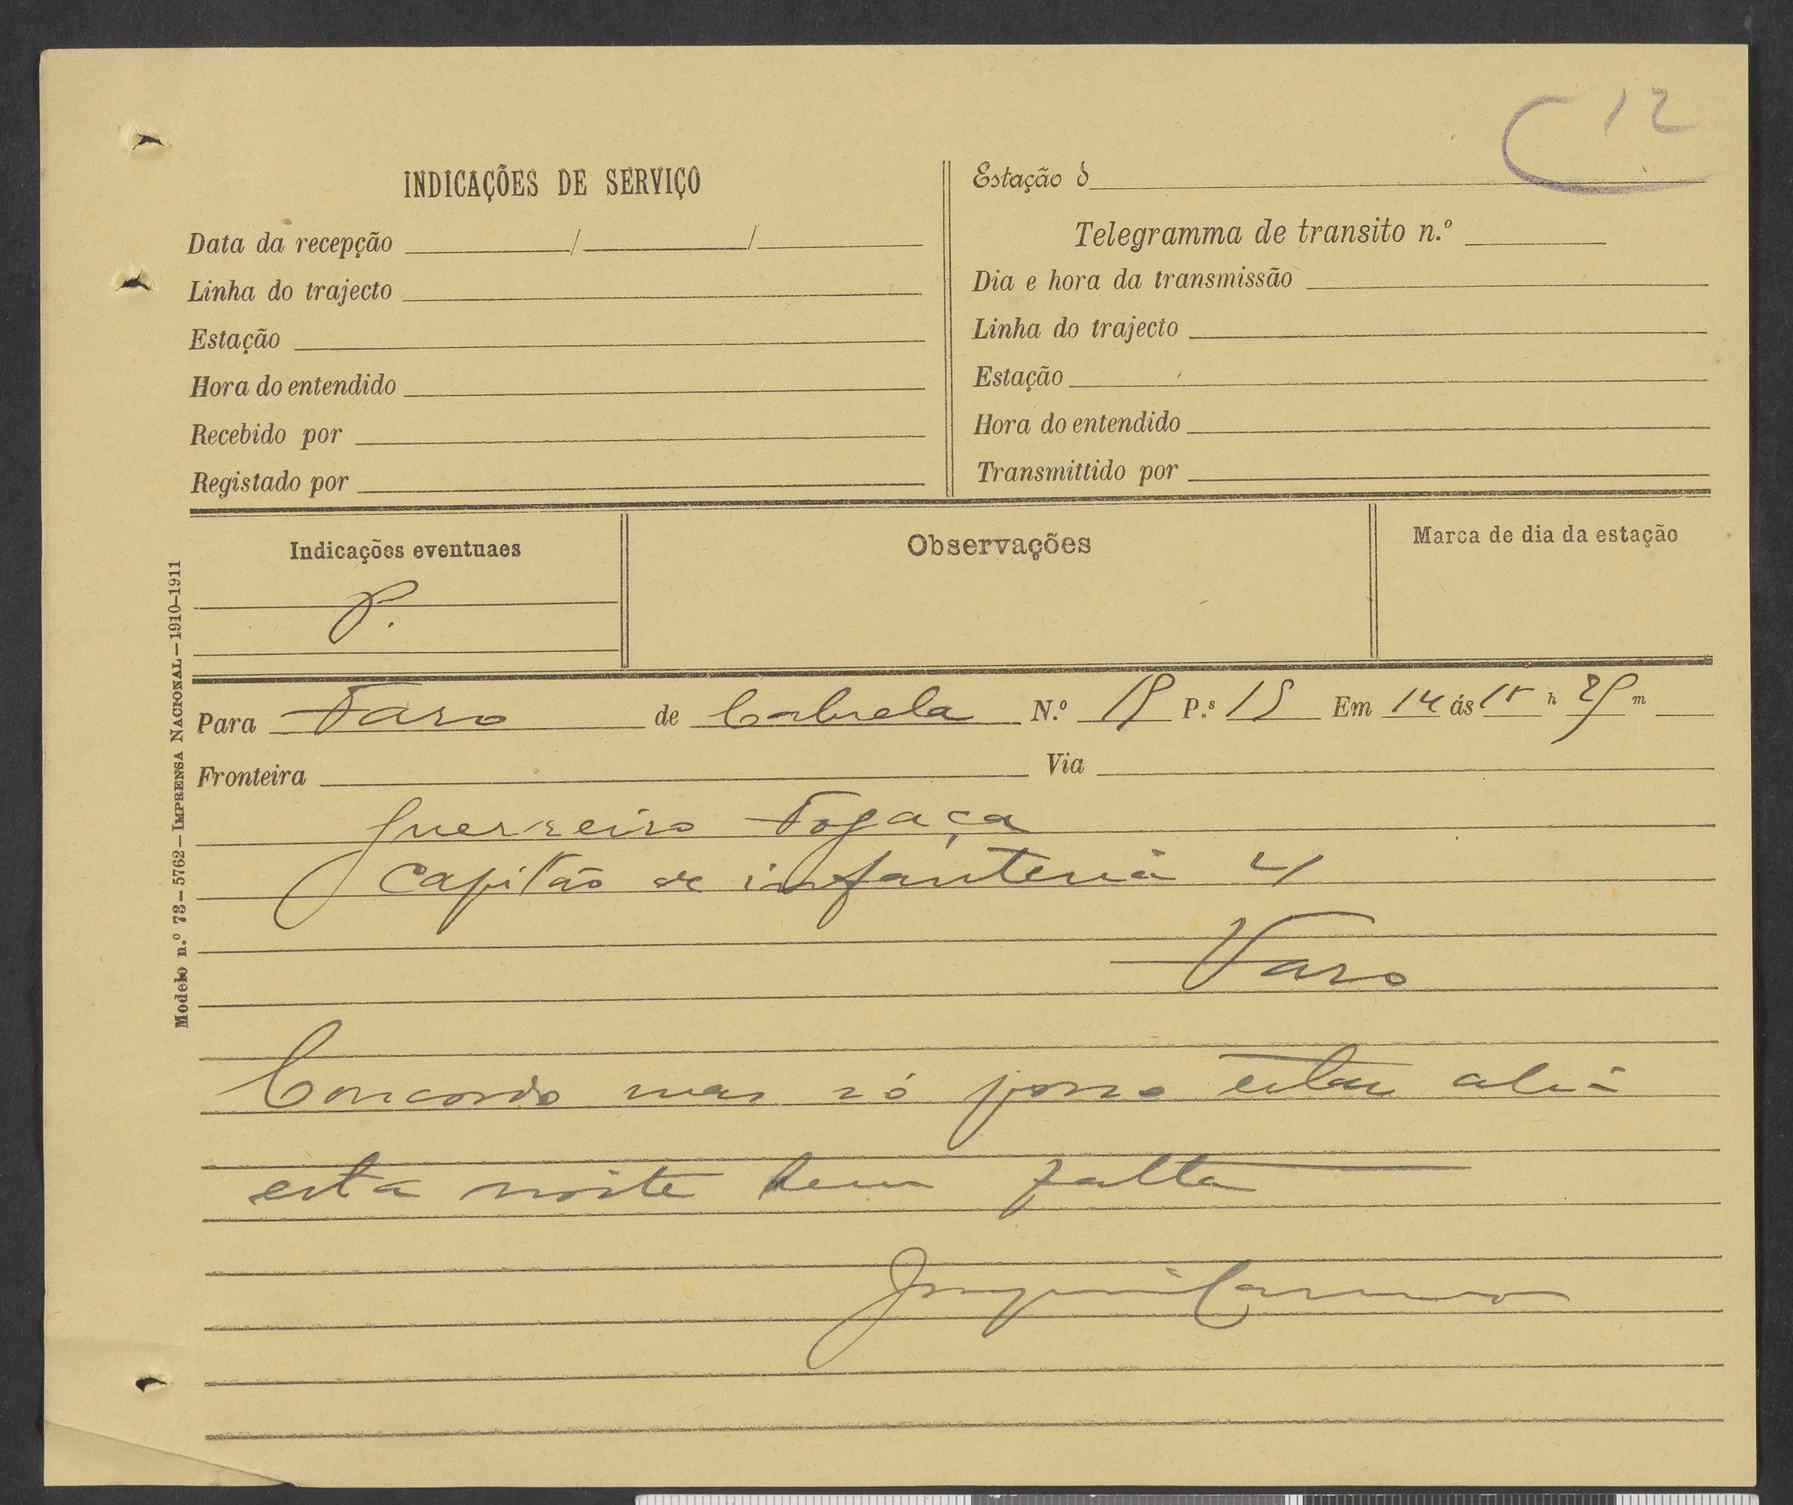 12
INDICAÇÕES DE SERVIÇO
Data da recepção / /
Linha do trajecto
Estação
Hora do entendido
Recebido por
Registado por
Estação d
Telegramma de transito n.º
Dia e hora da transmissão
Linha do trajecto
Estação
Hora do entendido
Transmittido por
Indicações eventuaes
P.
Observações
Marca de dia da estação
Para Faro de N.º P.s 15 Em 14 ás 15 h 25 m
Fronteira Via
Guerreiro Fogaça
Capitão de infanteria 4
Faro
Concordo mas só posso estar ahi
esta noite sem falta
Modelo n.º 73 — 5762 — IMPRENSA NACIONAL — 1910-1911